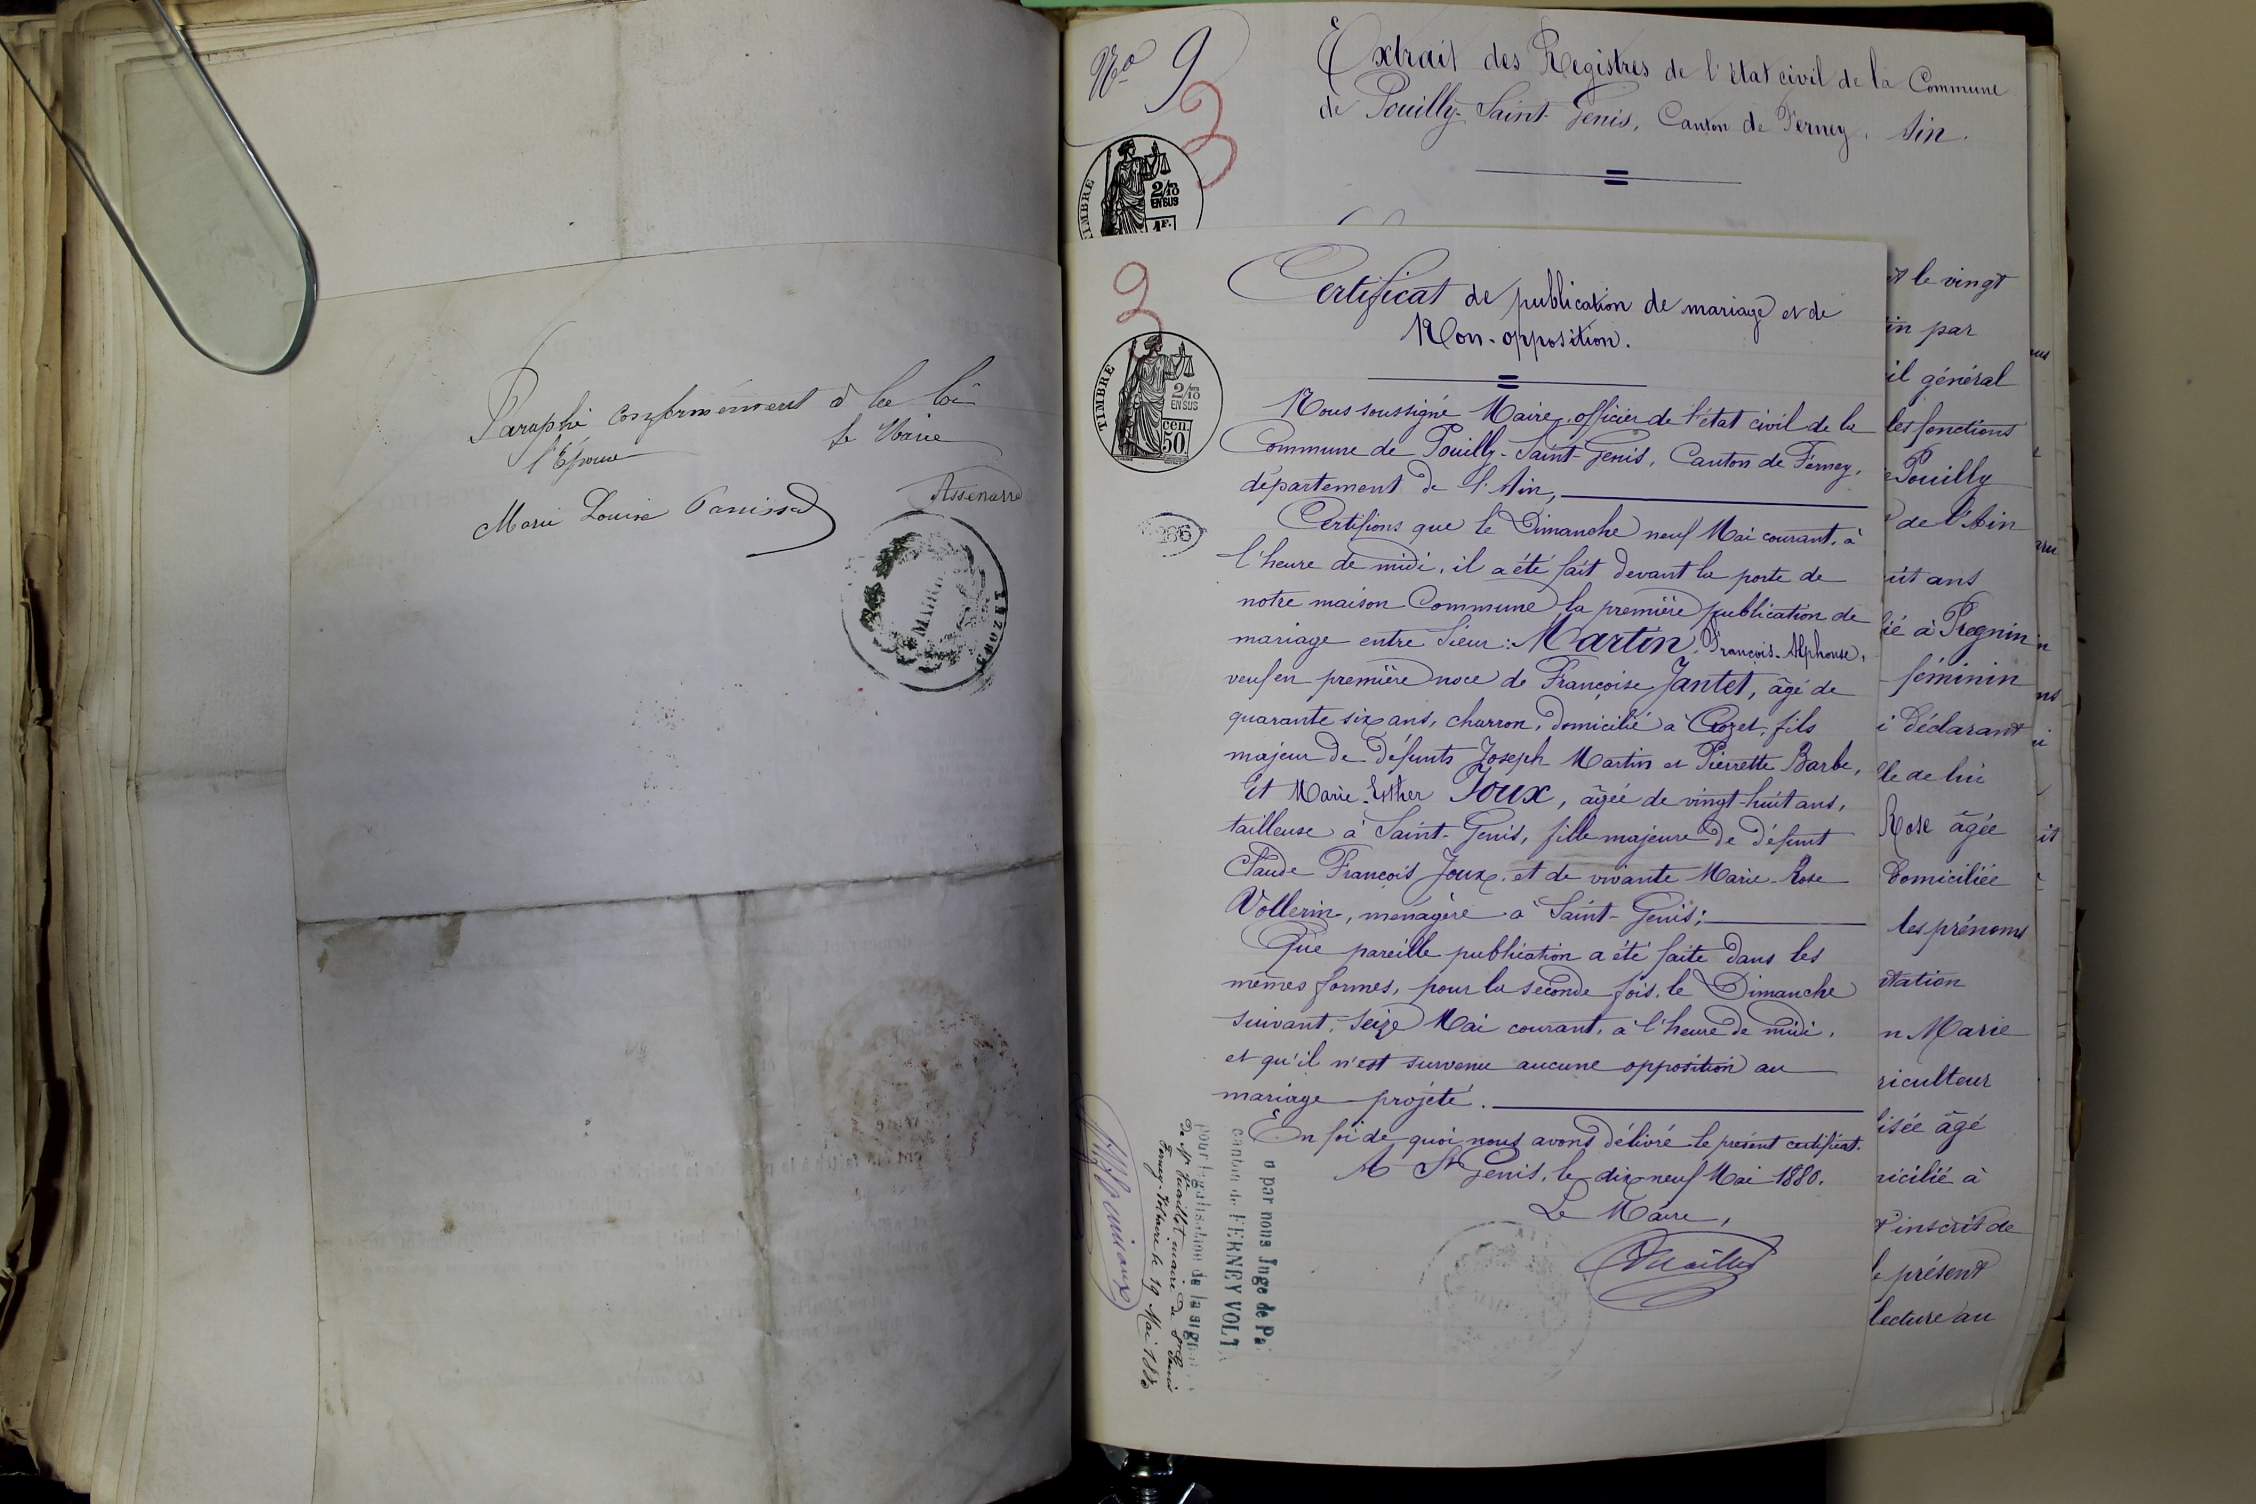 Paraphé conformément à la loi
le Maire
l'Epouse
Marie Louise Panissod
MAIRIE
CROZET
No 9
Extrait des Registres de l'état civil de la Commune
de Pouilly-Saint-Genis, Canton de Ferney, Ain.
TIMBRE
2/10
EN SUS
1F.
Certificat de publication de mariage et de
Non-opposition.
TIMBRE
2/10
EN SUS
cen.
50.
Nous soussigné Maire, officier de l'état civil de la
Commune de Pouilly-Saint-Genis, Canton de Ferney,
département de l'Ain,
Certifions que le Dimanche neuf Mai courant, à
l'heure de midi, il a été fait devant la porte de
notre maison Commune la première publication de
mariage entre sieur : Martin, François-Alphonse,
veuf en première noce de Françoise Jantet, âgé de
quarante six ans, charron, domicilié à Crozet, fils
majeur de défunts Joseph Martin et Pierrette Barbe,
Et Marie-Esther Joux, âgée de vingt-huit ans,
tailleuse à Saint-Genis, fille majeure de défunt
Claude François Joux, et de vivante Marie-Rose
Vollerin, ménagère à Saint-Genis;
Que pareille publication a été faite dans les
mêmes formes, pour la seconde fois, le Dimanche
suivant, seize Mai courant, à l'heure de midi,
et qu'il n'est survenu aucune opposition au
mariage projeté.
En foi de quoi nous avons délivré le présent certificat.
A St Genis, le dix-neuf Mai 1880.
Le Maire,
par nous Juge de Pa
canton de FERNEY VOLT
pour légalisation de la sign
de Mr maire de St Genis
Ferney-Voltaire le 19 Mai 1880
le vingt
in par
il général
les fonctions
Pouilly
de l'Ain
uit ans
ié à Pregnin
féminin
i déclarant
lle de lui
Rose âgée
domiciliée
les prénoms
ntation
n Marie
riculteur
isée âgé
micilié à
t inscrit de
le présent
lecture au